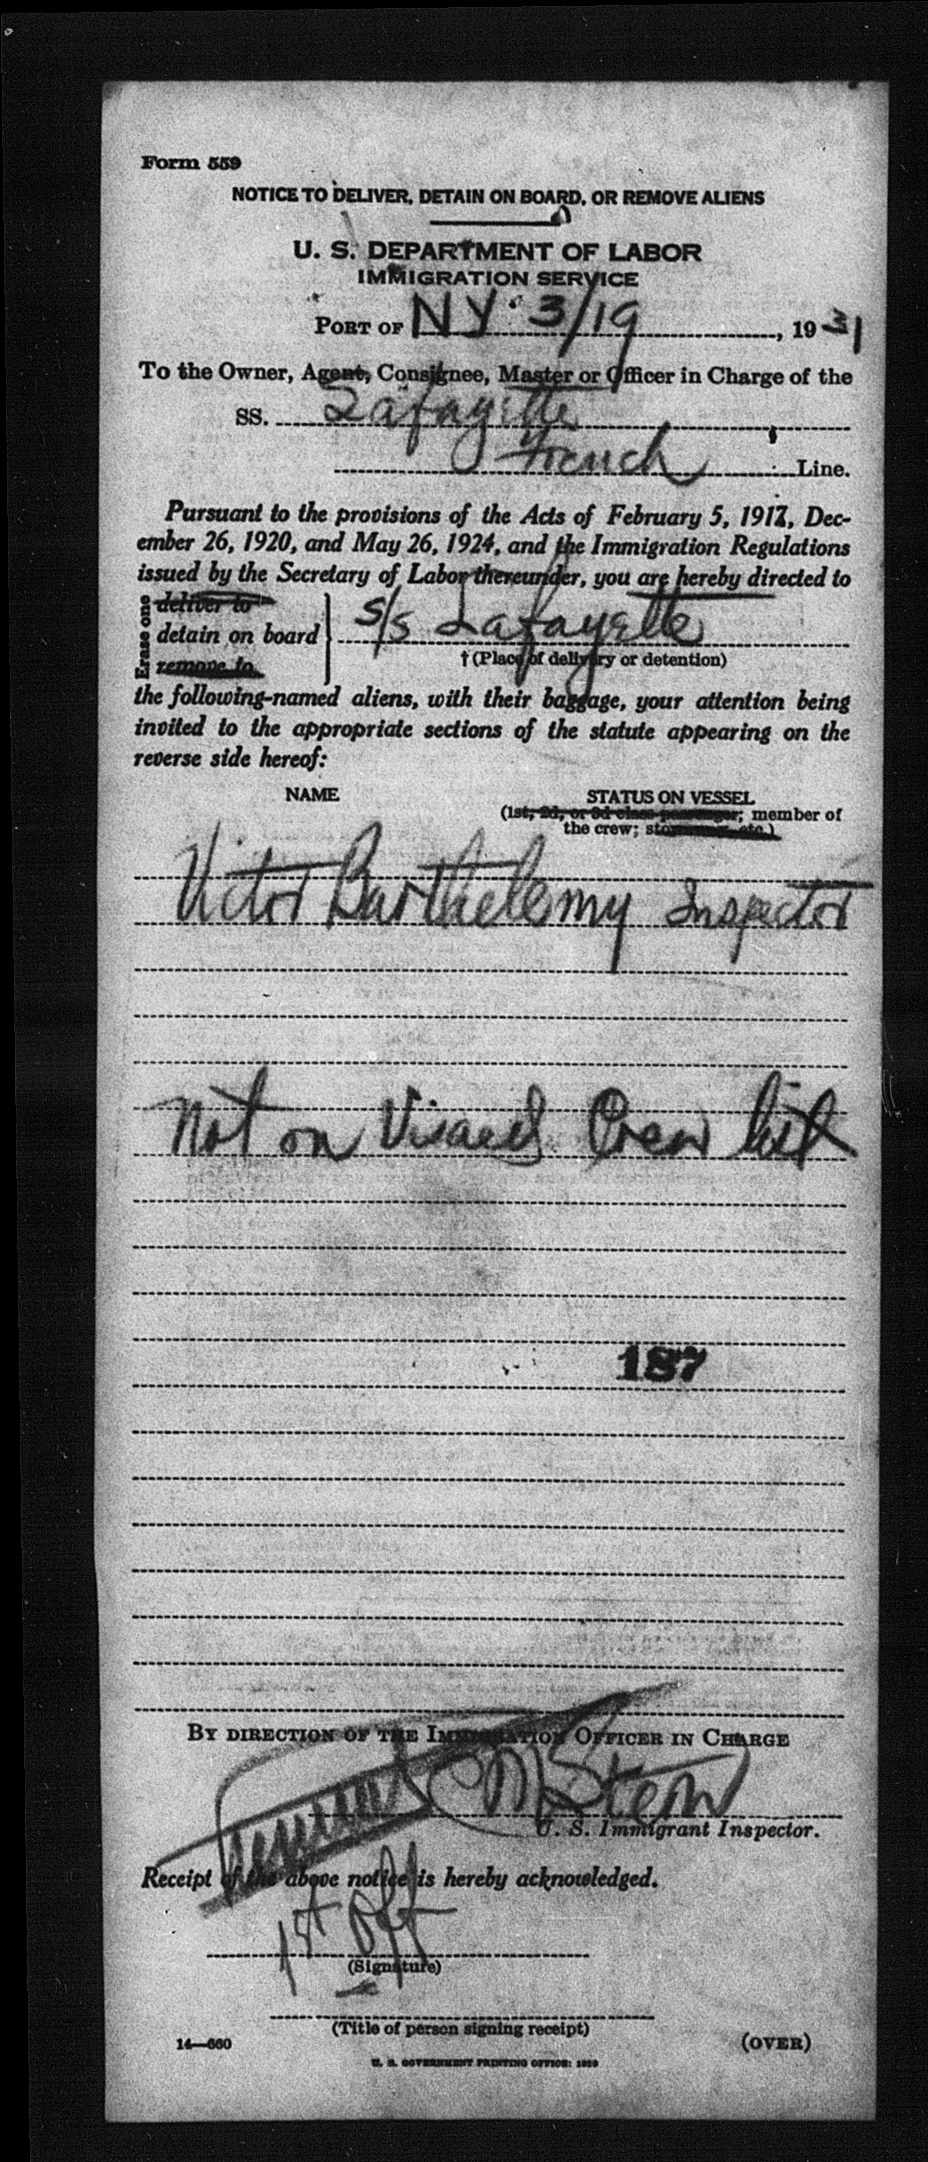 Form 559
NOTICE TO DELIVER, DETAIN ON BOARD, OR REMOVE ALIENS
U. S. DEPARTMENT OF LABOR
IMMIGRATION SERVICE
PORT OF NY 3/19, 1931
To the Owner, Agent, Consignee, Master or Officer in Charge of the
SS. Lafayette
French Line.
Pursuant to the provisions of the Acts of February 5, 1917, Dec-
ember 26, 1920, and May 26, 1924, and the Immigration Regulations
issued by the Secretary of Labor thereunder, you are hereby directed to
Erase one
deliver to
detain on board } S/S Lafayette
remove to
† (Place of delivery or detention)
the following-named aliens, with their baggage, your attention being
invited to the appropriate sections of the statute appearing on the
reverse side hereof:
NAME STATUS ON VESSEL
(1st, 2d, or 3d class passenger; member of
the crew; stowaway, etc.)
Victor Barthelemy Inspector
Not on Visaed Crew list
187
BY DIRECTION OF THE IMMIGRATION OFFICER IN CHARGE
Stern
U. S. Immigrant Inspector.
Receipt of the above notice is hereby acknowledged.
1st Off
(Signature)
(Title of person signing receipt)
14—660 (OVER)
U. S. GOVERNMENT PRINTING OFFICE: 1929